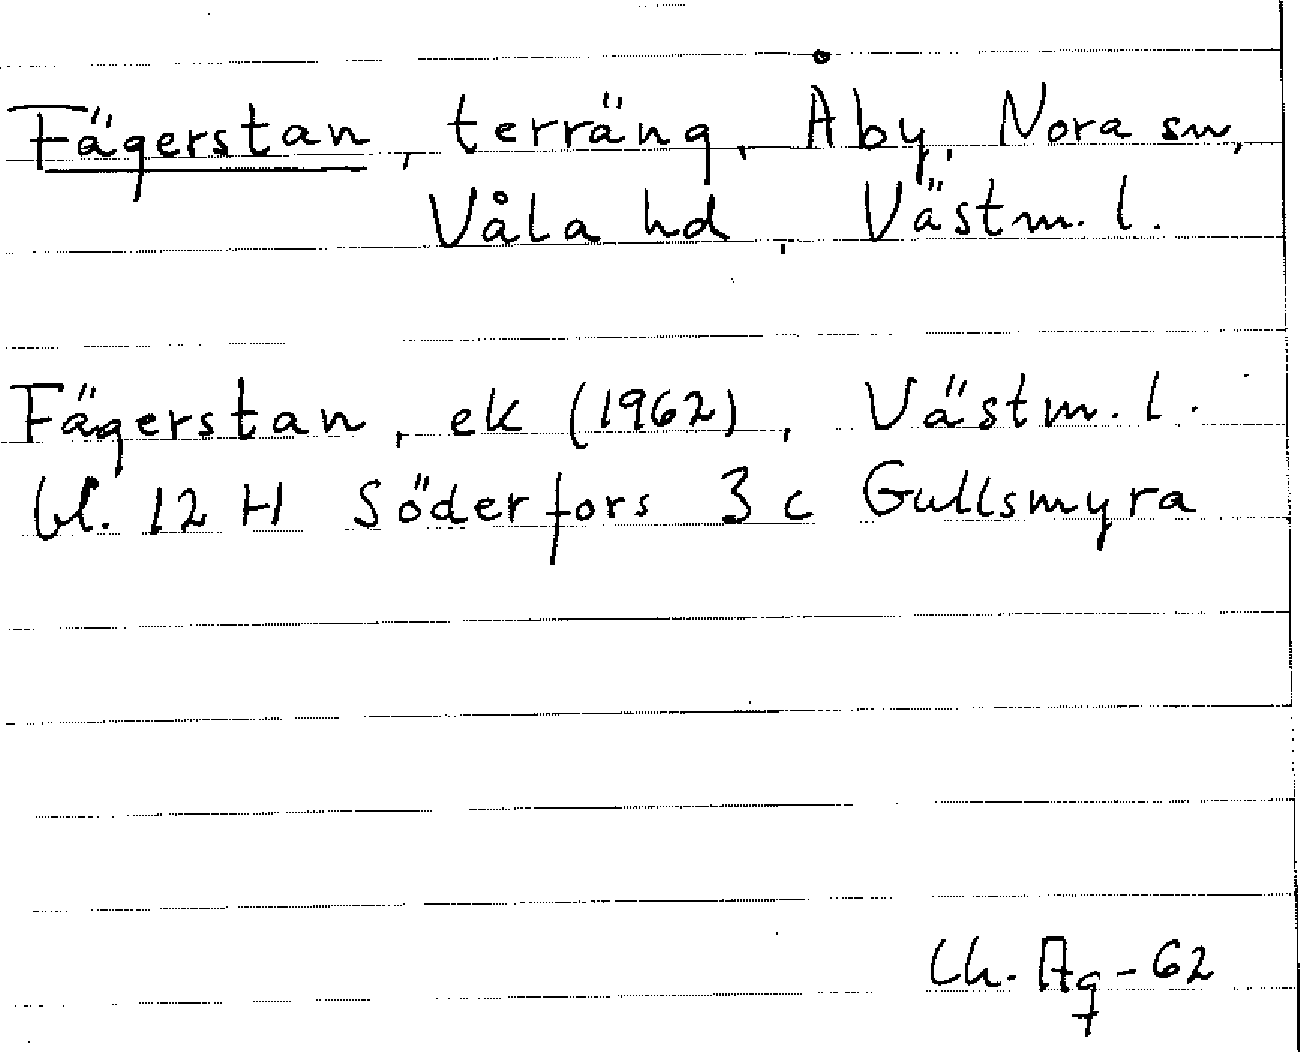 Fägerstan, terräng, Åby, Nora sn,
Våla hd, Västm. l.
Fägerstan, ek (1962), Västm. l.
bl. 12 H Söderfors 3 c Gullsmyra
Ch. Ag-62